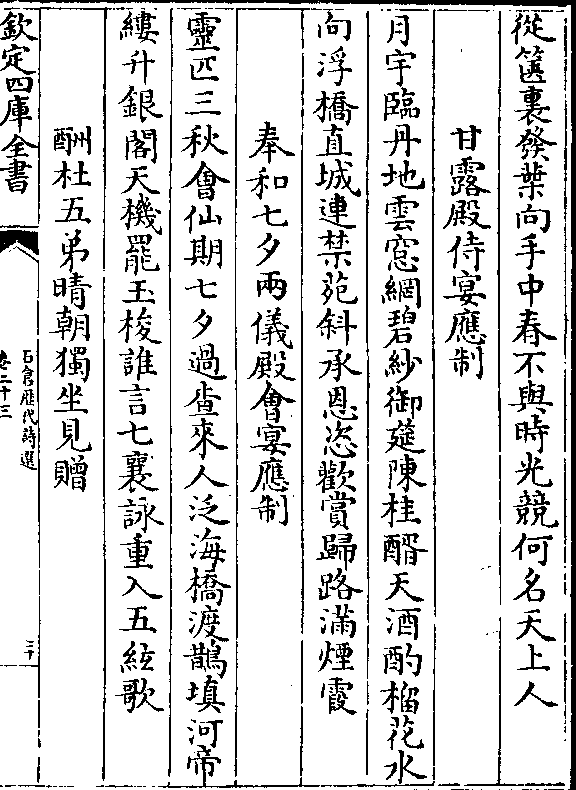 從篋裏發葉向手中春不與時光競何名天上人
甘露殿侍宴應制
月宇臨丹地雲窓網碧紗御筵陳桂醑天酒酌榴花水
向浮橋直城連禁苑斜承恩恣歡賞歸路滿煙霞
奉和七夕兩儀殿會宴應制
靈匹三秋會仙期七夕過查來人泛海橋渡鵲填河帝
縷升銀閣天機罷玉梭誰言七襄詠重入五絃歌
酬杜五弟晴朝獨坐見贈
欽定四庫全書
石倉歷代詩選
卷二十三